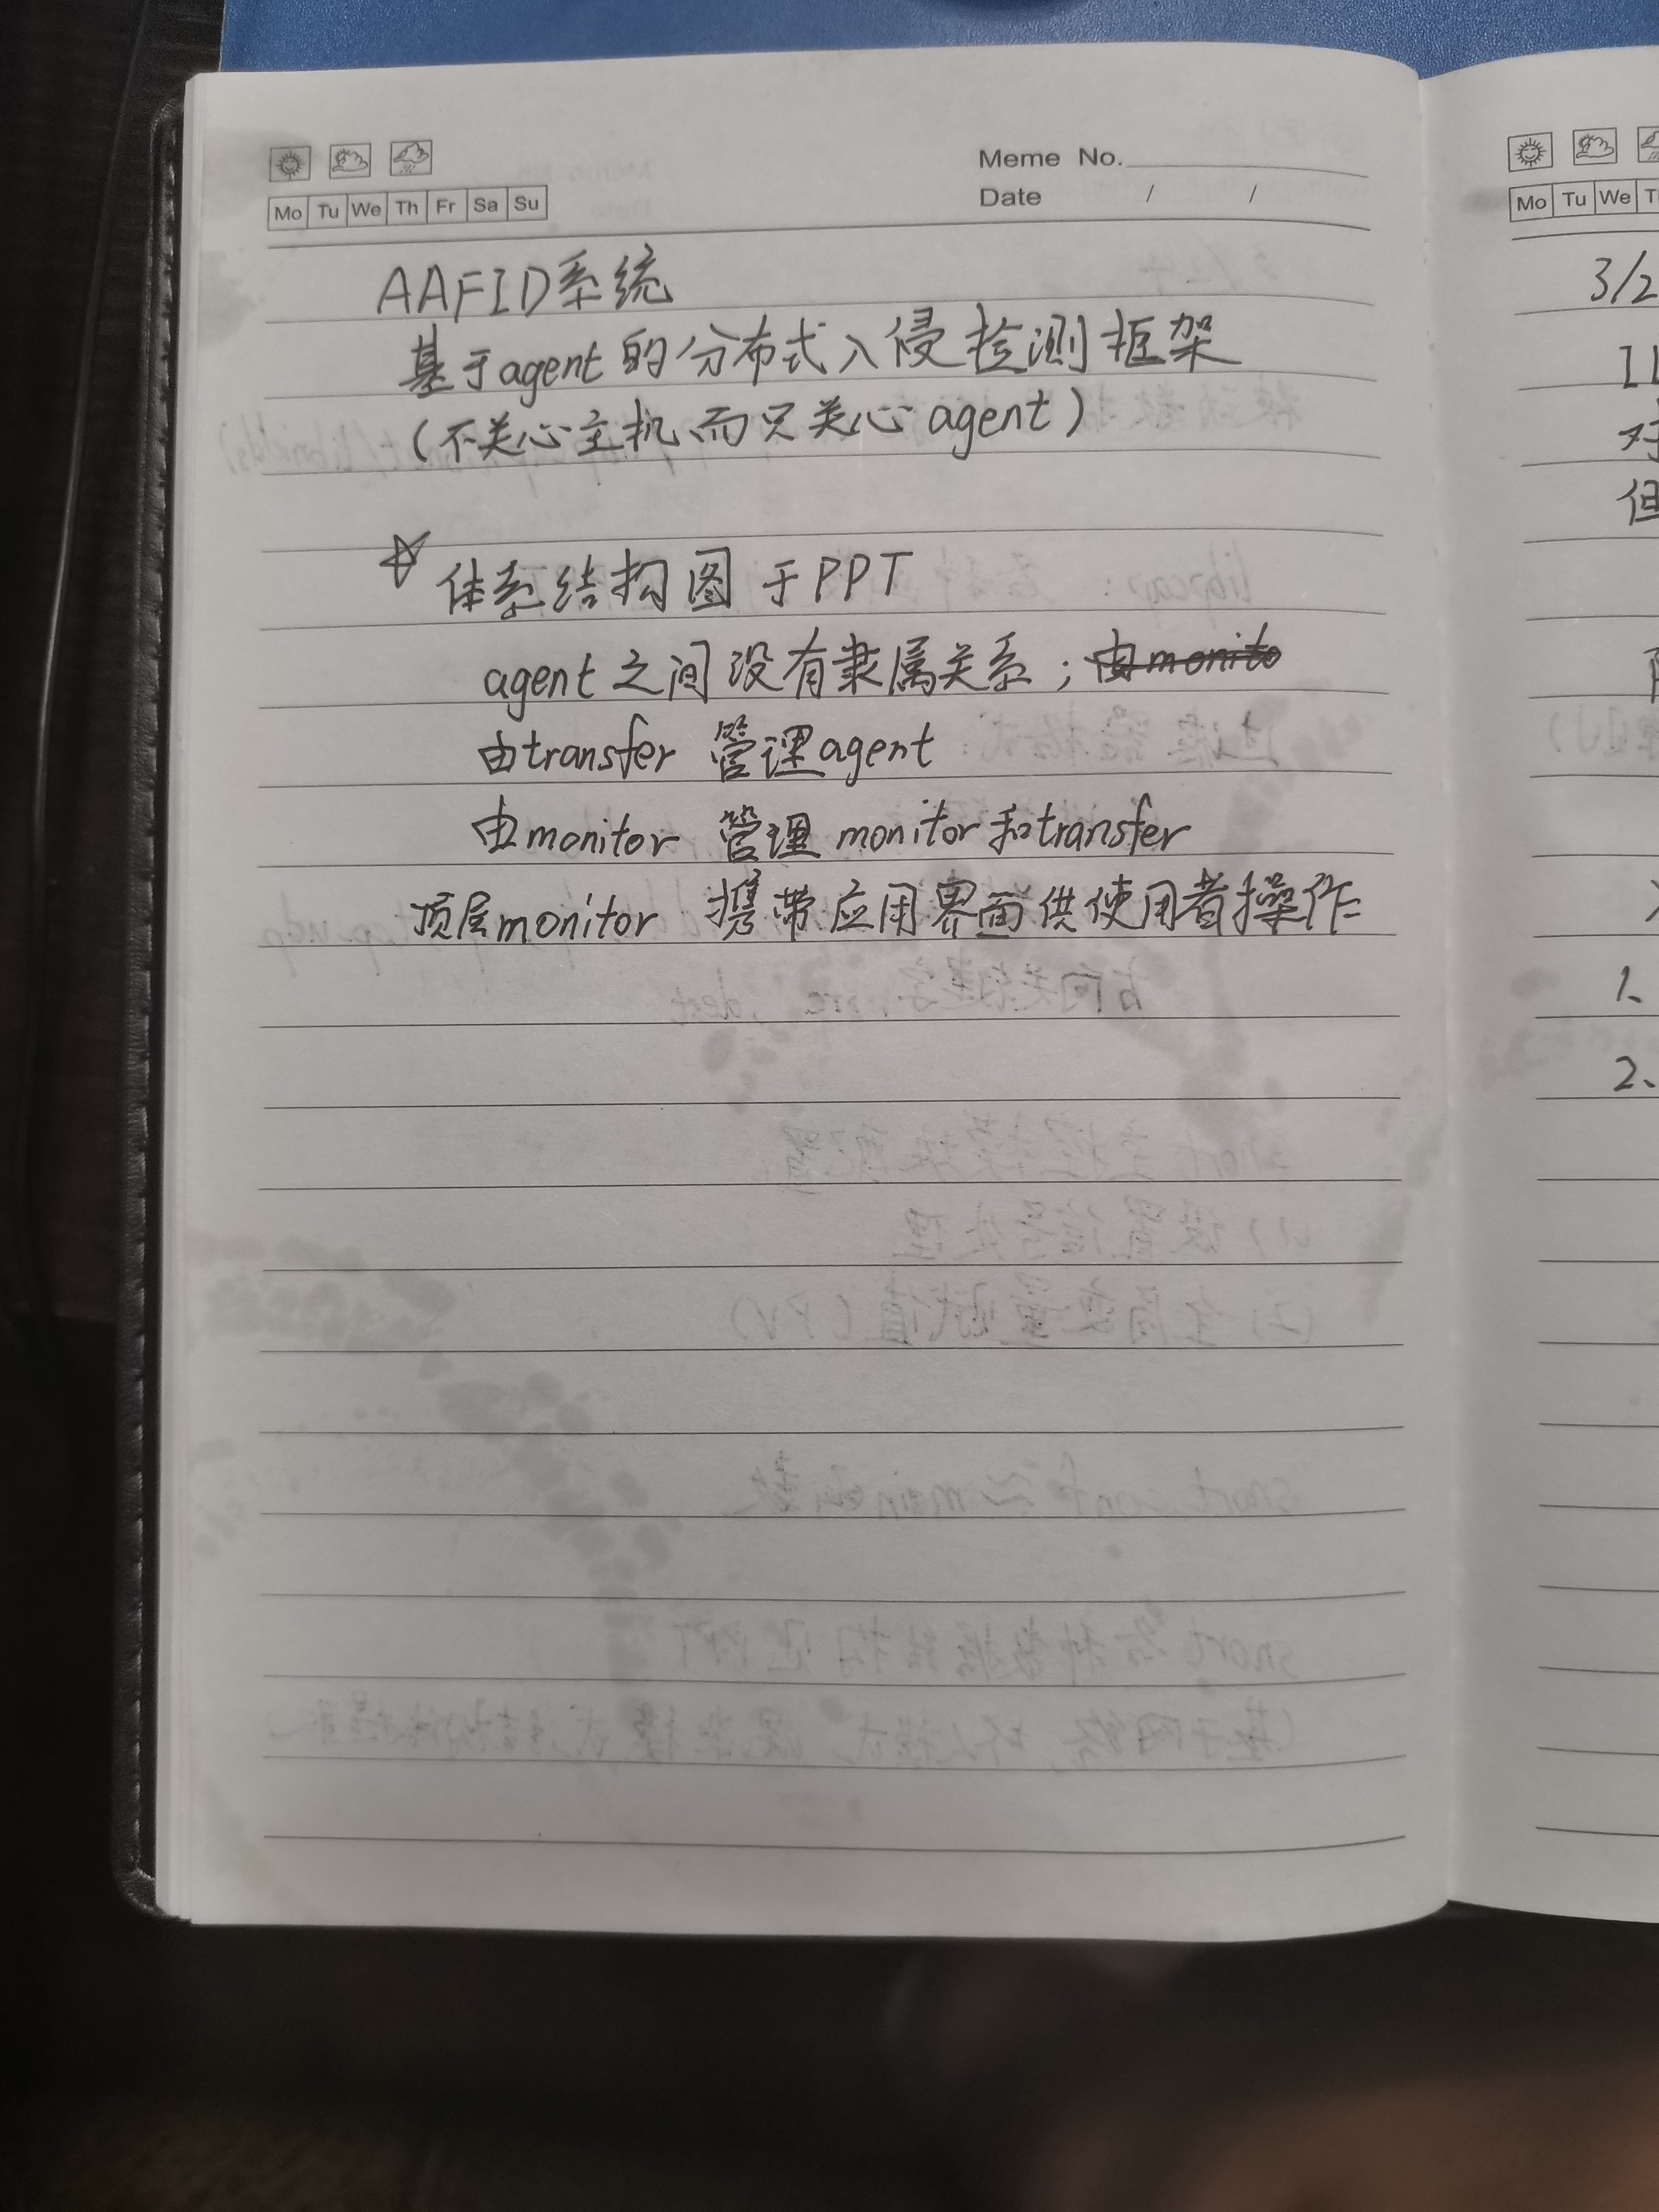 Meme No.
Date / /
Mo Tu We Th Fr Sa Su
AAFID系统
基于agent的分布式入侵检测框架
(不关心主机、而只关心agent)
☆体系结构图于PPT
agent之间没有隶属关系；由monito
由transfer 管理agent
由monitor 管理 monitor和transfer
顶层monitor 携带应用界面供使用者操作
Mo Tu We
3/2
对
但
1、
2、